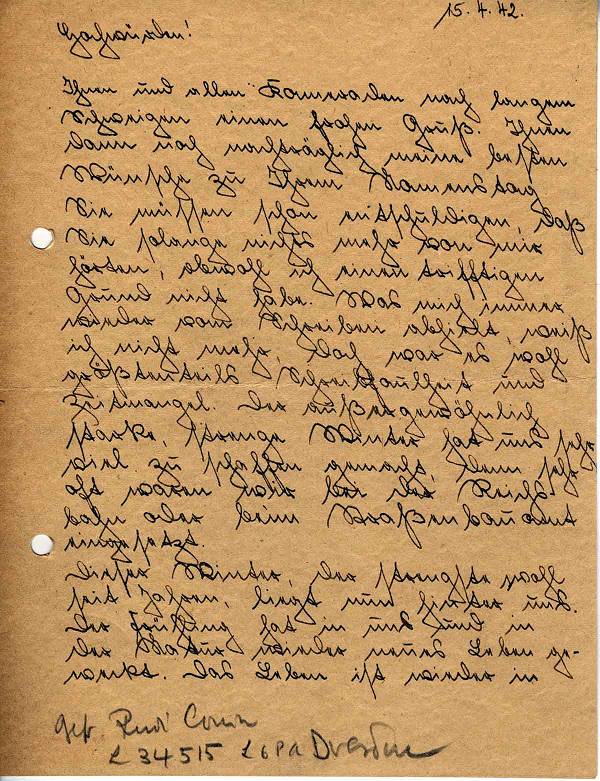 15.4.42.
Hochwürden!
Ihnen und allen Kameraden nach langem
Schweigen einen frohen Gruß. Ihnen
dann noch nachträglich meine besten
Wünsche zu Ihrem Namenstag
Sie müssen schon entschuldigen, daß
Sie solange nichts mehr von mir
hörten, obwohl ich einen trifftigen
Grund nicht habe. Was mich immer
wieder vom Schreiben abhielt, weiß
ich nicht mehr, doch war es wohl
größtenteils Schreibfaulheit und
Zeitmangel. Der außergewöhnlich
starke, strenge Winter hat uns sehr
viel zu schaffen gemacht, denn sehr
oft waren wir bei der Reichs-
bahn oder beim Straßenbauamt
eingesetzt.
Dieser Winter, der strengste wohl
seit Jahren, liegt nun hinter uns.
Der Frühling hat in uns und in
der Natur wieder neues Leben ge-
weckt. Das Leben ist wieder in
Gefr. Rudi
L 34515 LGPA Dresden